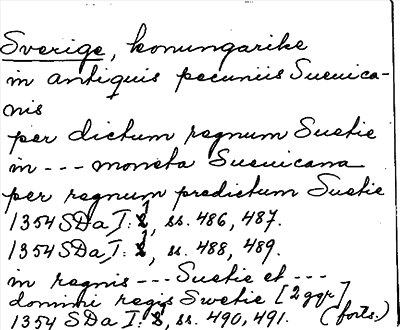 Sverige, konungarike
in antiquis pecuniis Sueuica-
nis
per dictum regnum Suetie
in --- moneta Sueuicana
per regnum predictum Suetie
1354 SDa I: 1, ss. 486, 487.
1354 SDa I: 1, ss. 488, 489.
in regnis --- Suetie et ---
domini regis Swetie [2 ggr]
1354 SDa I: 8, ss. 490, 491. (forts.)